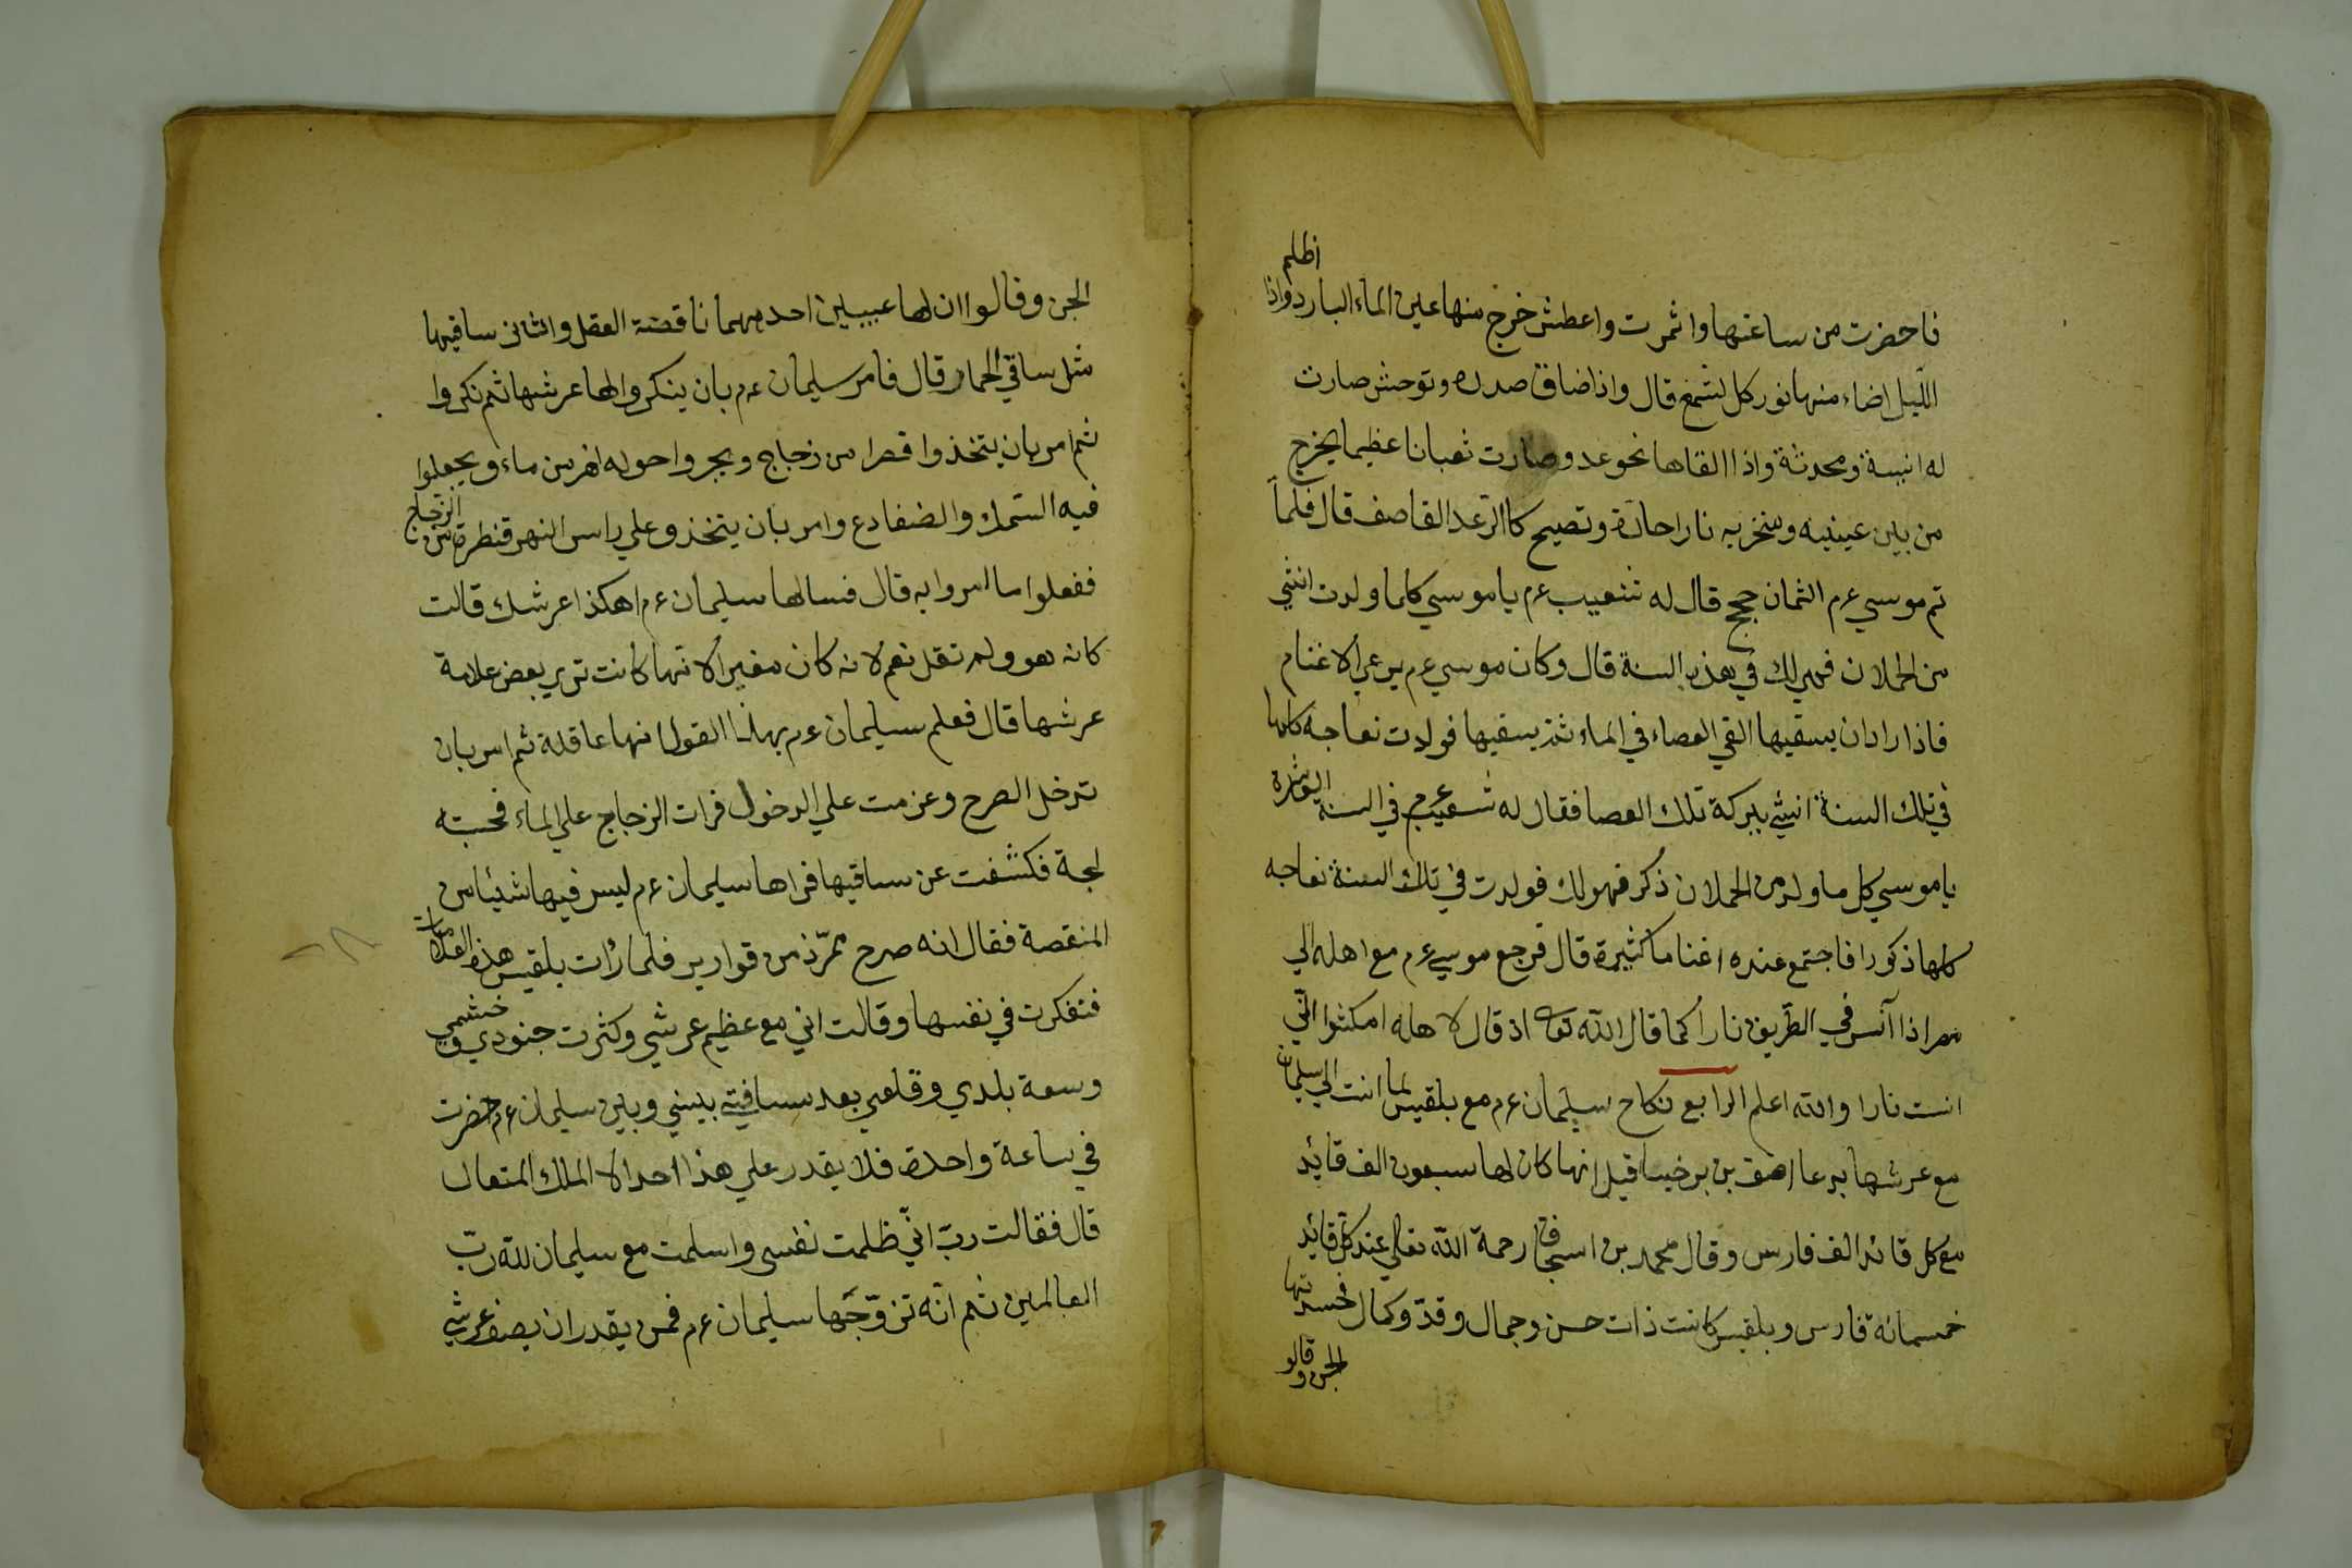 فاحضرت من ساعتها واثمرت واعطش خرج منها عين الماء البارد واذا اظلم
اللّيل اضاء منها نور كل لشمع قال واذا ضاق صدره وتوحش صارت
له انيسة ومحدثة واذا القاها نحو عدو صارت ثعبانا عظيما يخرج
من بين عينيه ومنخريه نارا حارّة وتصيح كاالرّعد القاصف قال فلمّا
تم موسي ع م الثمان حجج قال له شعيب ع م يا موسي كلما ولدت انثي
من الحملان فهي لك في هذه السنة قال وكان موسي ع م يرعي الاغنام
فاذا اراد ان يسقيها القي العصاء في الماء ثم يسقيها فولدت نعاجه كلها
في تلك السنة انثي ببركة تلك العصا فقال له شعيب ع م في السنة العاشرة
يا موسي كل ما ولد من الحملان ذكر فهو لك فولدت في تلك السنة نعاجه
كلها ذكورا فاجتمع عنده اغناما كثيرة قال فرجع موسي ع م مع اهله الي
مصر اذا آنس في الطّريق نارا كما قال اللّه تعا اذ قال لاهله امكثوا انّي
انست نارا واللّه اعلم الرابع نكاح سليمان ع م مع بلقيس لما انت الي سليمان
مع عرشها بدعا اصف بن برخيا قيل انها كان لها سبعون الف قائد
مع كل قائد الف فارس وقال محمد بن اسحاق رحمة اللّه تعالي عند كل قائد
خمسمائة فارس وبلقيس كانت ذات حسن وجمال وقدّ وكمال فحسدتها
الجن وقالو
الجن وقالوا ان لها عيبين احدهما ناقصة العقل والثاني ساقيها
مثل ساقي الحمار قال فامر سليمان ع م بان ينكروا لها عرشها ثم نكروا
ثم امر بان يتخذوا قصرا من زجاج ويجروا حوله نهر من ماء ويجعلوا
فيه السّمك والضفادع وامر بان يتخذو علي راس النهر قنطرة من الزجاج
ففعلوا ما امروا به قال فسالها سليمان ع م اهكذا عرشك قالت
كانه هو ولم تقل نعم لانه كان مغيرا لانّها كانت تري بعض علامة
عرشها قال فعلم سليمان ع م بهذا القول انها عاقلة ثم امر بان
تدخل الصرح وعزمت علي الدخول فرات الزجاج علي الماء فحسبته
لجة فكشفت عن ساقيها فراها سليمان ع م ليس فيها شيئا من
المنقصة فقال انه صرح ممرّد من قوارير فلما رأت بلقيس هذه العلامات
فتفكرت في نفسها وقالت اني مع عظيم عرشي وكثرت جنودي وخشمي
وسعة بلدي وقلعي بعد مسافته بيني وبين سليمان ع م حضرت
في ساعة واحدة فلا يقدر علي هذا احد الا الملك المتعال
قال فقالت ربّ انّي ظلمت نفسي واسلمت مع سليمان للّه ربّ
العالمين ثم انّه تزوّجها سليمان ع م فمن يقدر ان يصف عرشي